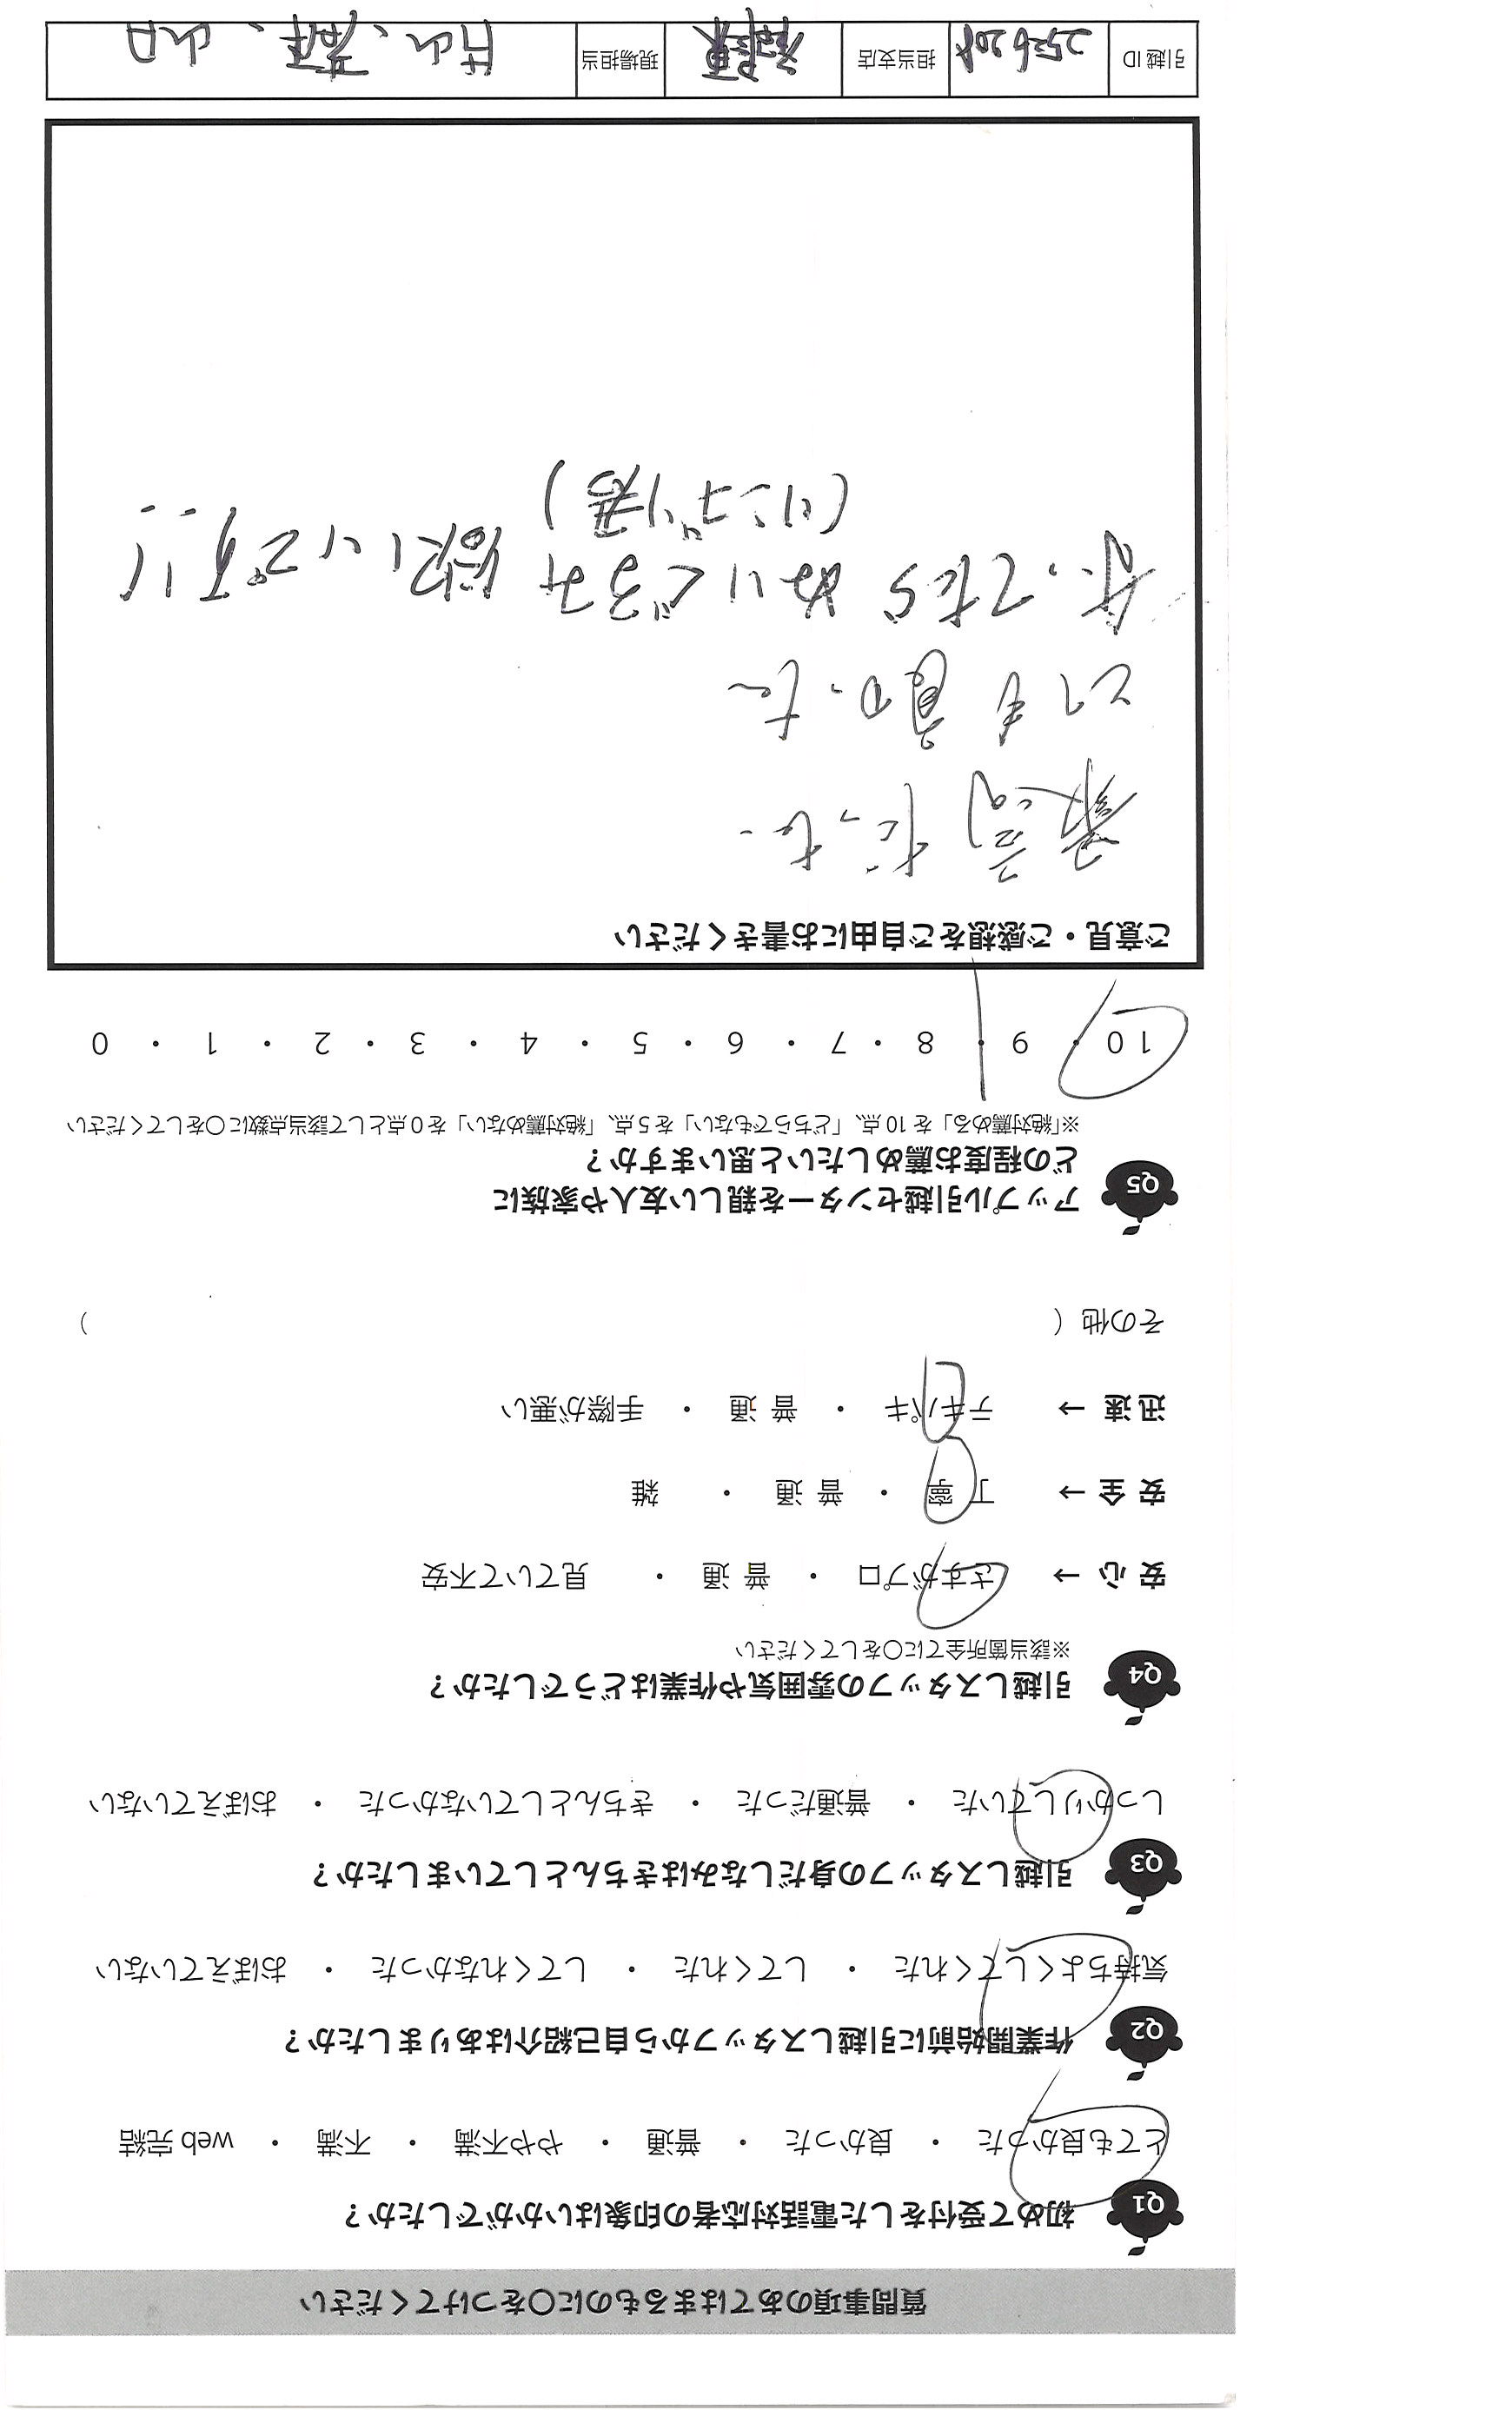 質問事項のあてはまるものに〇をつけてください
Q1 初めて受付をした電話対応者の印象はいかがでしたか？
とても良かった ・ 良かった ・ 普通 ・ やや不満 ・ 不満 ・ web 完結
Q2 作業開始前に引越しスタッフから自己紹介はありましたか？
気持ちよくしてくれた ・ してくれた ・ してくれなかった ・ おぼえていない
Q3 引越しスタッフの身だしなみはきちんとしていましたか？
しっかりしていた ・ 普通だった ・ きちんとしていなかった ・ おぼえていない
Q4 引越しスタッフの雰囲気や作業はどうでしたか？
※該当箇所全てに〇をしてください
安 心 → さすがプロ ・ 普 通 ・ 見ていて不安
安 全 → 丁 寧 ・ 普 通 ・ 雑
迅 速 → テキパキ ・ 普 通 ・ 手際が悪い
その他（ ）
Q5 アップル引越センターを親しい友人や家族に
どの程度お薦めしたいと思いますか？
※「絶対薦める」を 10 点、「どちらでもない」を 5 点、「絶対薦めない」を 0 点として該当点数に〇をしてください
10 ・ 9 ・ 8 ・ 7 ・ 6 ・ 5 ・ 4 ・ 3 ・ 2 ・ 1 ・ 0
ご意見・ご感想をご自由にお書きください
最高だった
とても良かった
ぬいぐるみ欲しいです!!
引越 ID 担当支店 現場担当